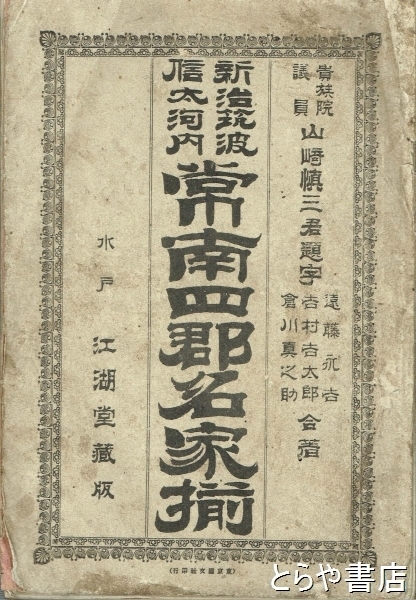 貴族院
議員
山崎慎三君題字
遠藤永吉
吉村吉太郎
倉川真之助
合著
新治筑波
信太河内
常南四郡名家揃
水戸
江湖堂蔵版
とらや書店